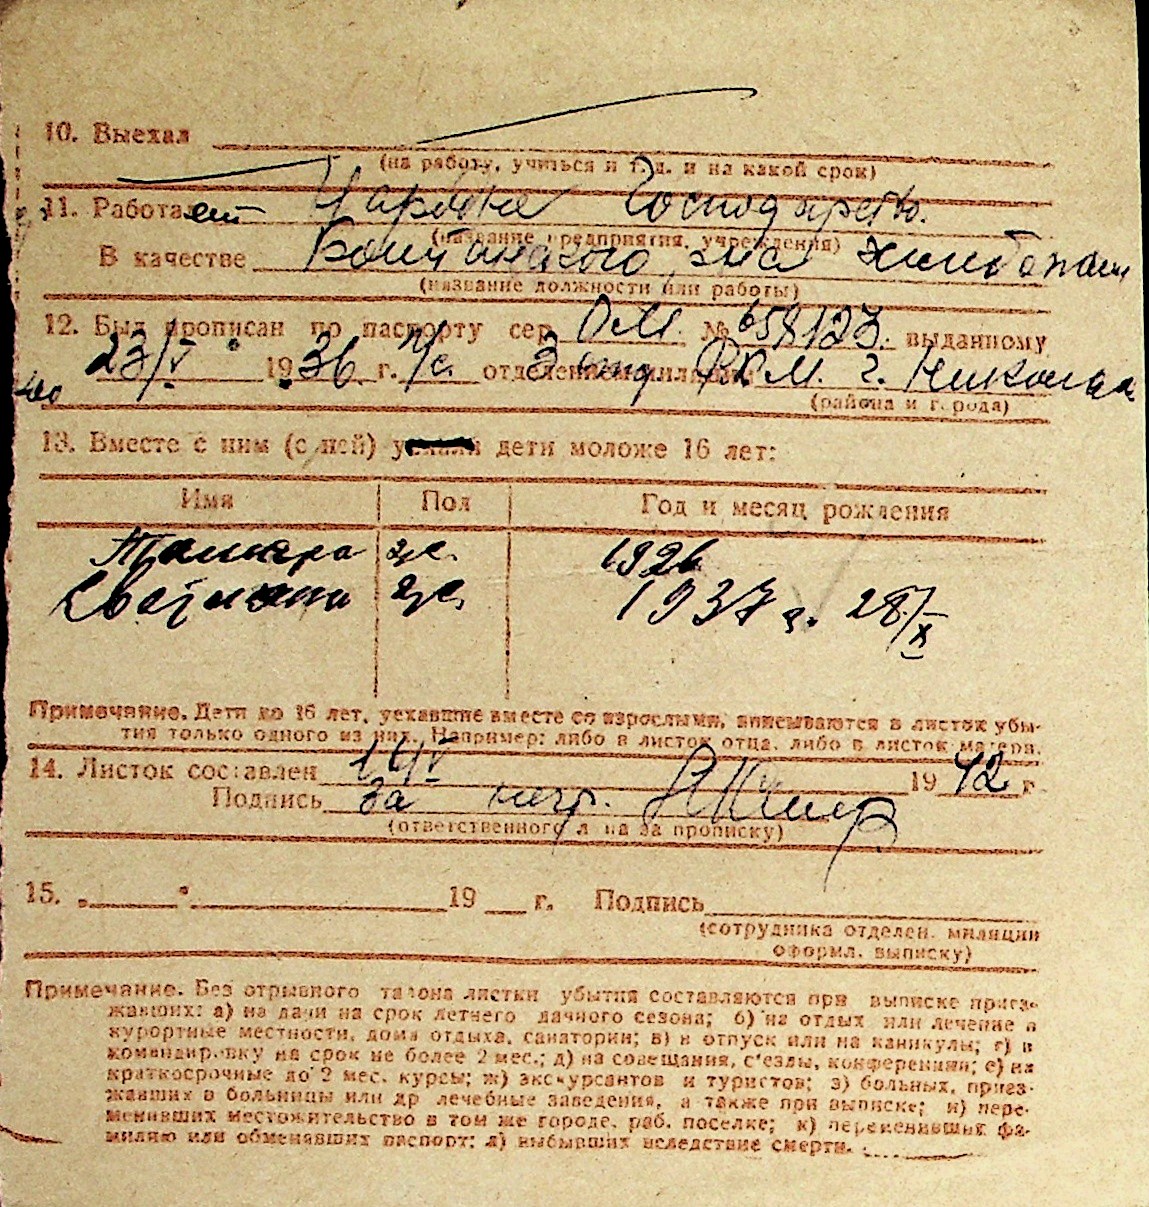 10. Выехал
(на работу, учиться и т. д. и на какой срок)
11. Работает
(название предприятия, учреждения)
В качестве
(название должности или работы)
12. Был прописан по паспорту сер. О.М. № 658123. выданному
23/V 1936 г. отделением милиции Р.К.М. г. Николае
(района и города)
13. Вместе с ним (с ней) дети моложе 16 лет:
Имя Пол Год и месяц рождения
Тамара ж. 1926
Светлана ж. 1937 г. 28/X
Примечание. Дети до 16 лет, уехавшие вместе со взрослыми, вписываются в листок убы-
тия только одного из них. Например: либо в листок отца, либо в листок матери.
14. Листок составлен 14/V 1942 г
Подпись За
(ответственного л на за прописку)
15. „ “ 19 г. Подпись
(сотрудника отделен. милиции
оформл. выписку)
Примечание. Без отрывного талона листки убытия составляются при выписке приез-
жавших: а) на дачи на срок летнего дачного сезона; б) на отдых или лечение в
курортные местности, дома отдыха, санатории; в) в отпуск или на каникулы; г) в
командировку на срок не более 2 мес.; д) на совещания, с'езды, конференции; е) на
краткосрочные до 2 мес. курсы; ж) экскурсантов и туристов; з) больных, приез-
жавших в больницы или др лечебные заведения, а также при выписке; и) пере-
менивших местожительство в том же городе, раб. поселке; к) переменивших фа-
милию или обменявших паспорт; л) выбывших вследствие смерти.